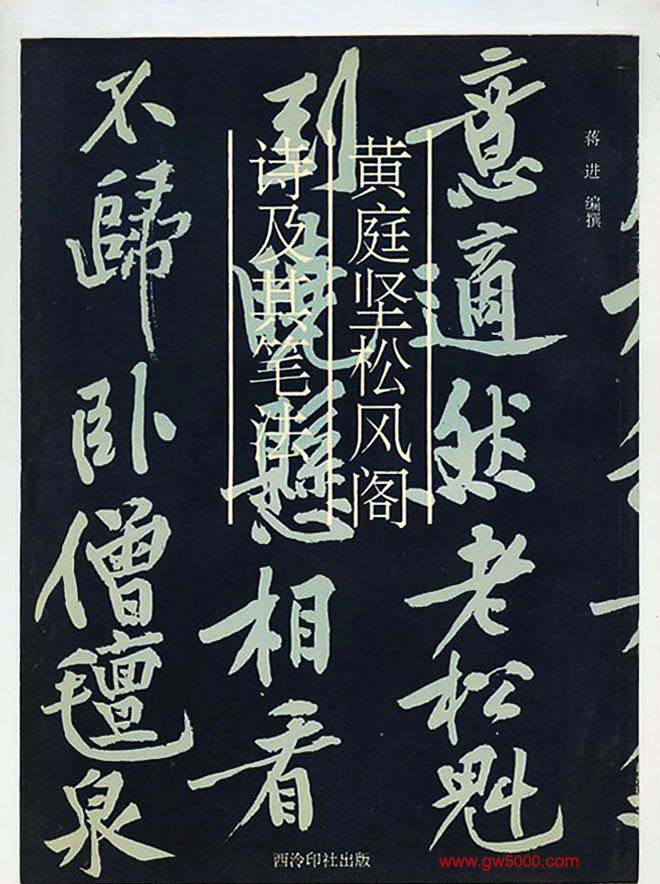 蒋进 编撰
黄庭坚松风阁
诗及其笔法
意適然老松魁
到曉懸相看
不歸卧僧氈泉
西泠印社出版
www.gw5000.com